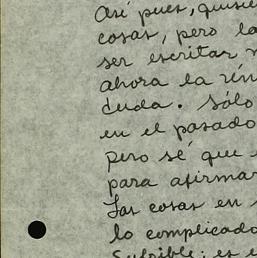 Así pues, quisie
cosas, pero la
ser escritar
ahora la rén
duda. Sólo
en el pasado
pero sé que
para afirmar
Las cosas en
lo complicado
Sufrible; es e